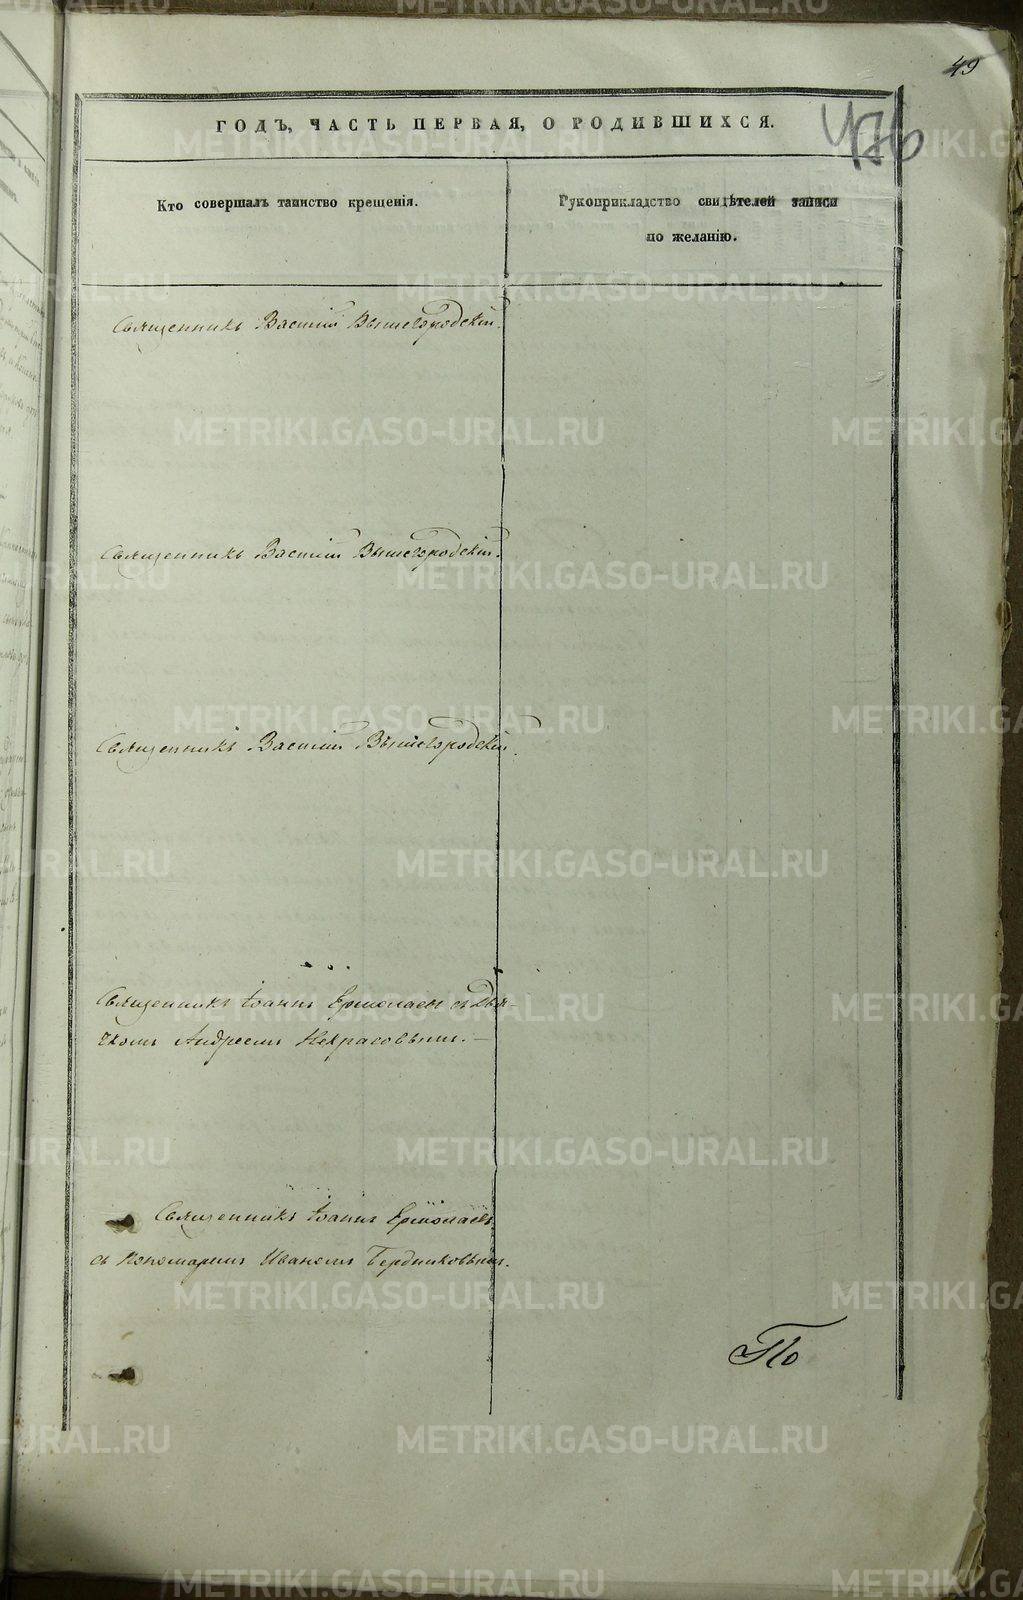 49
ГОДЪ, ЧАСТЬ ПЕРВАЯ, О РОДИВШИХСЯ.
476
Кто совершалъ таинство крещенія.
Рукоприкладство свидѣтелей записи
по желанію.
Священникъ Василій Вышегородскій.
Священникъ Василій Вышегородскій.
Священникъ Василій Вышегородскій.
Священникъ Іоаннъ Ермолаевъ съ Дьяч-
комъ Андреемъ Некрасовымъ. —
Священникъ Іоаннъ Ермолаевъ
съ Пономаремъ Иваномъ Бердниковымъ.
По
METRIKI.GASO-URAL.RU